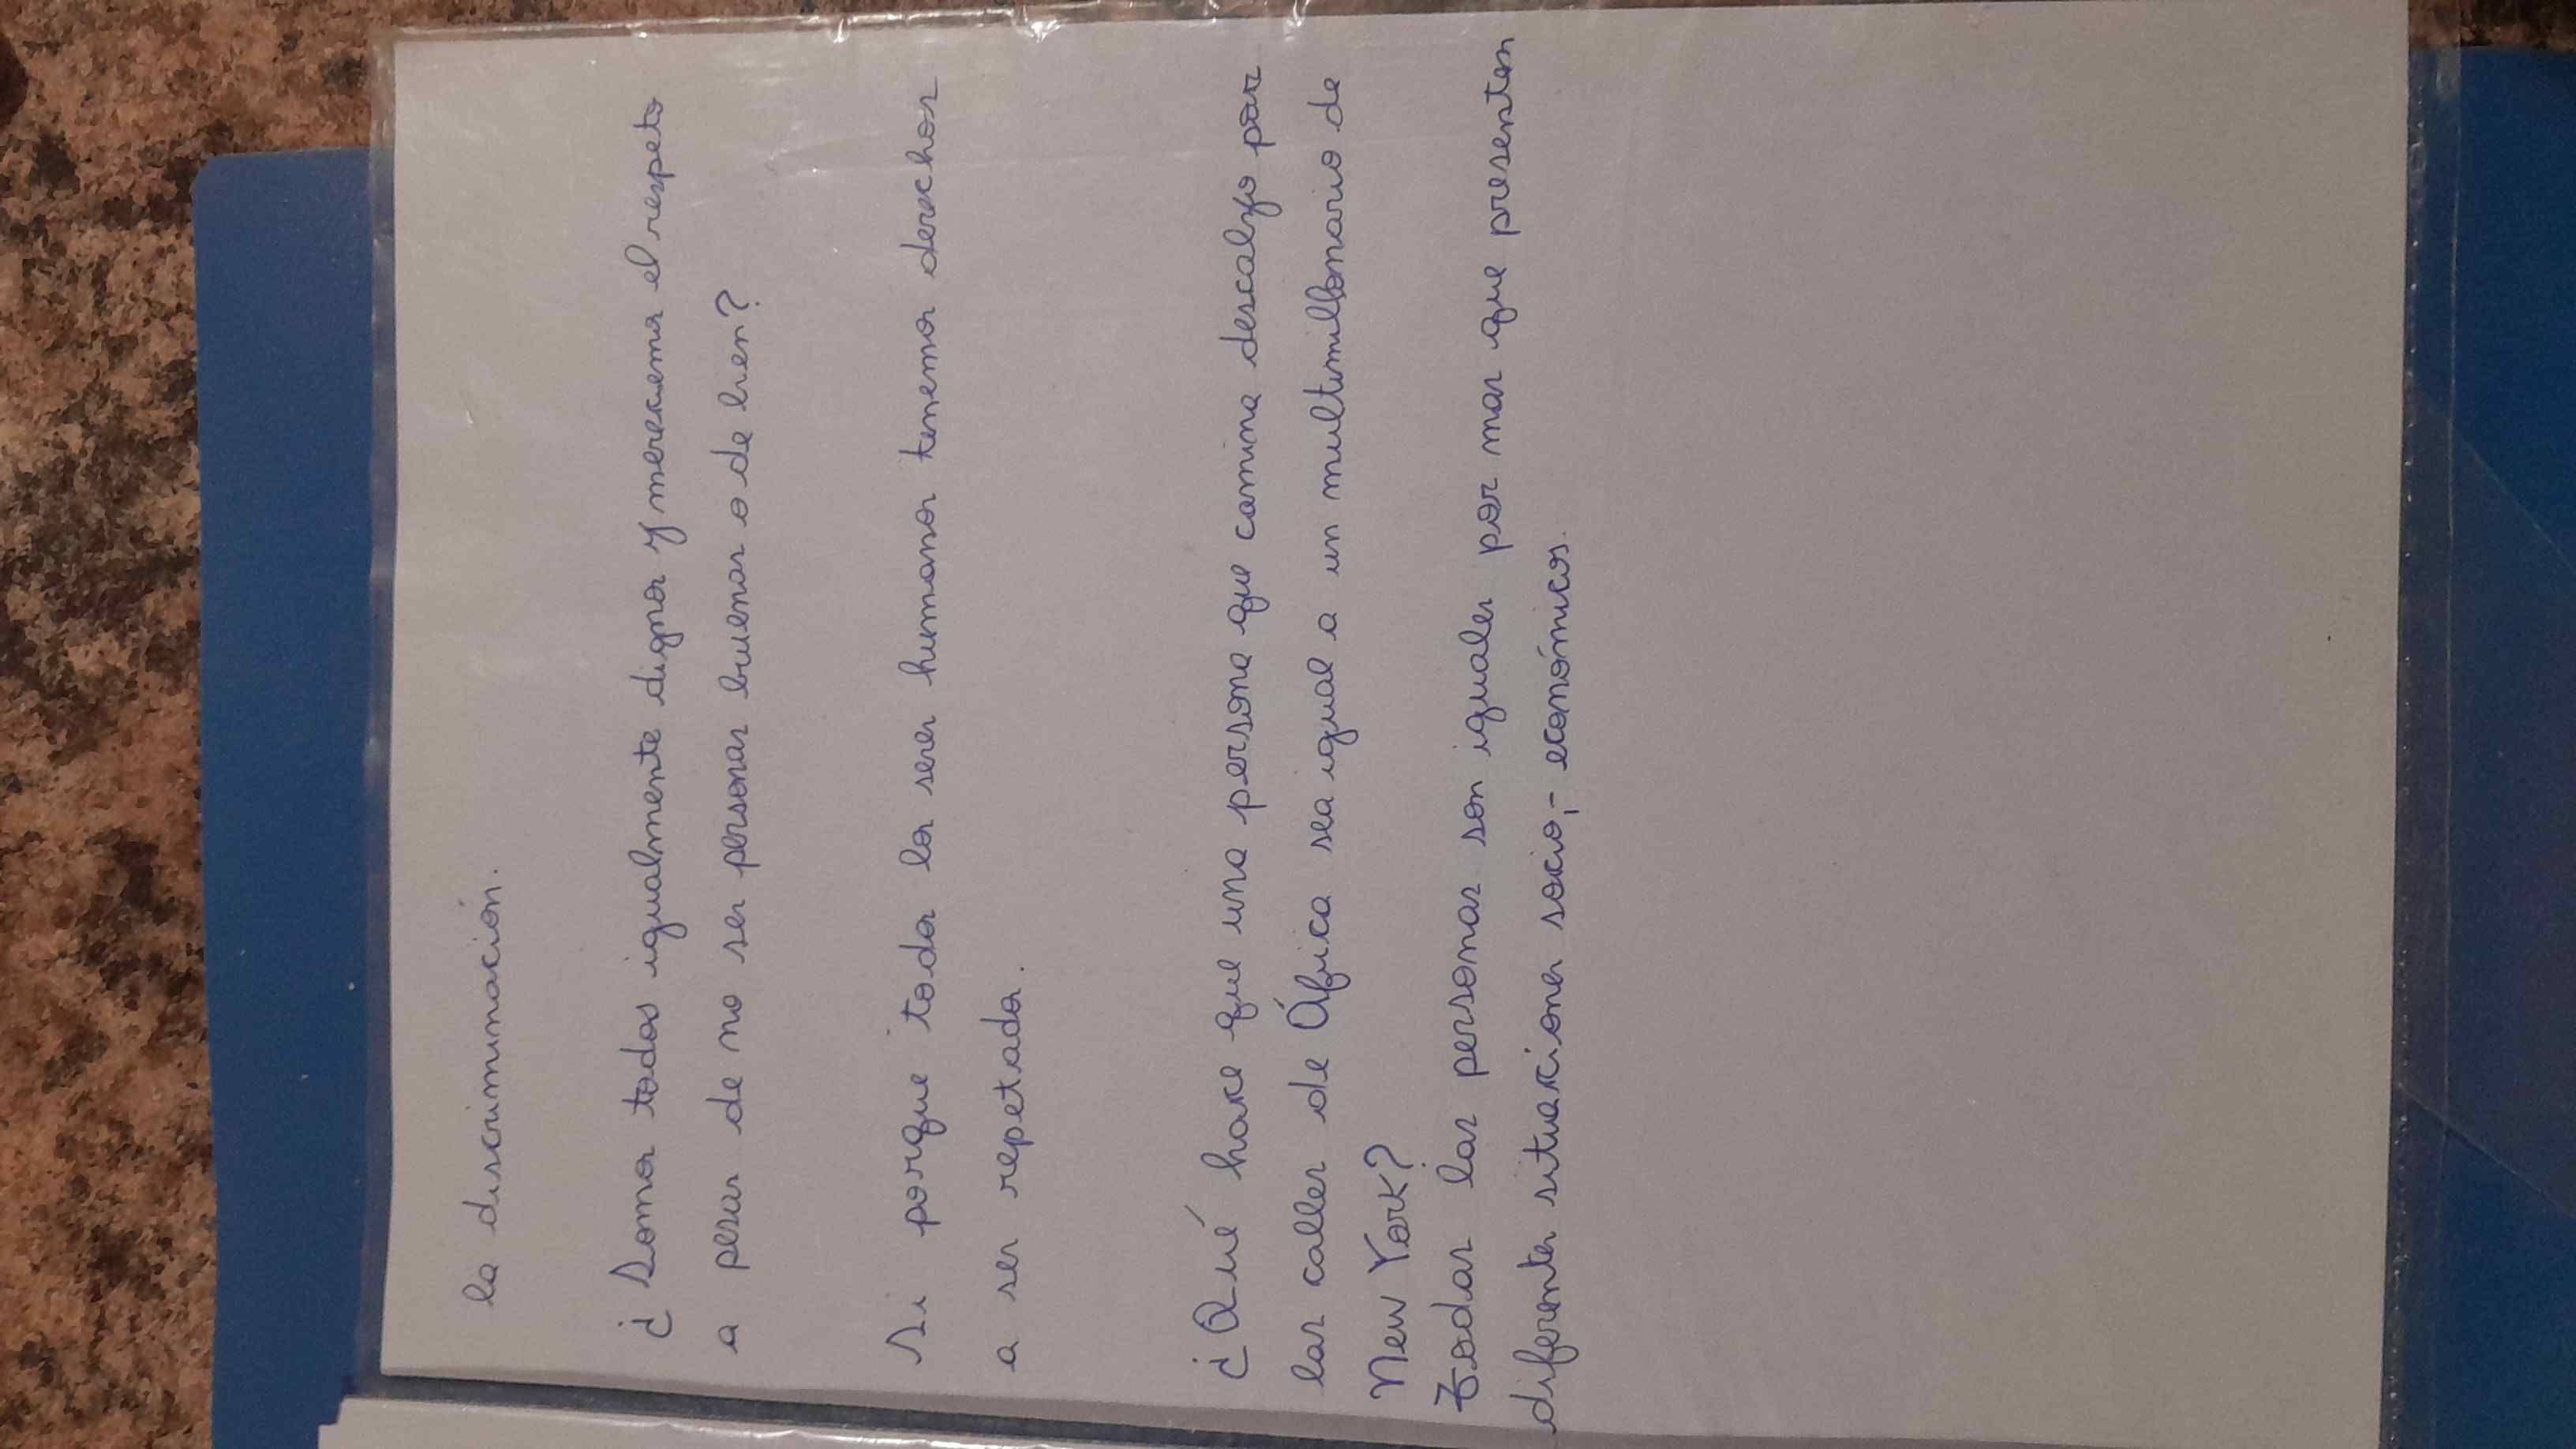 la discriminación.
¿Somos todos igualmente dignos y merecemos el respeto
a pesar de no ser personas buenas o de bien?
Si porque todos los seres humanos tenemos derechos
a ser repetados.
¿Qué hace que una persona que camina descalzo por
las calles de África sea igual a un multimillonario de
New York?
Todas las personas son iguales por mas que presenten
diferentes situaciones socio,- económicos.